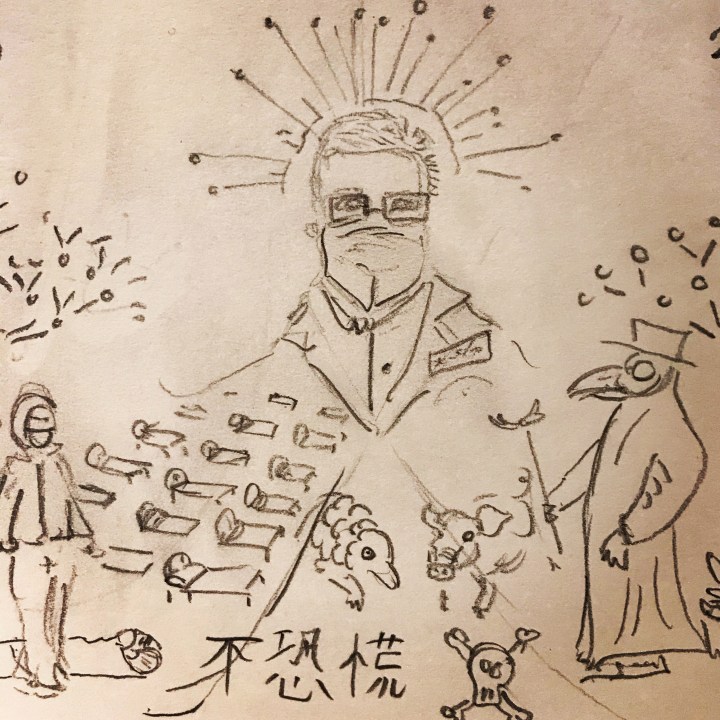 不恐慌